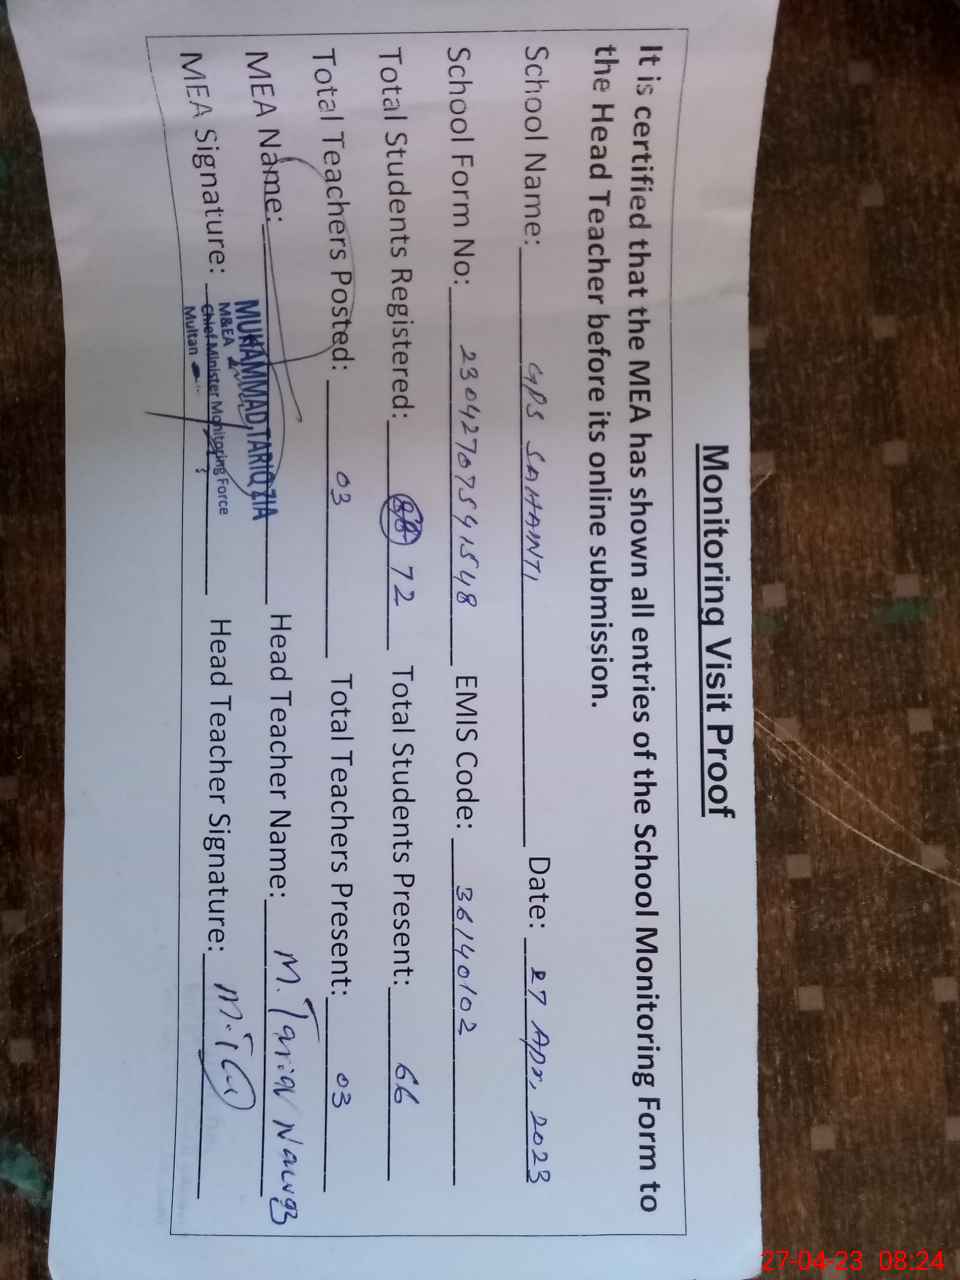 Monitoring Visit Proof
It is certified that the MEA has shown all entries of the School Monitoring Form to
the Head Teacher before its online submission.
School Name: GPS SAHANTI Date: 27 Apr, 2023
School Form No: 23042707541548 EMIS Code: 36140102
Total Students Registered: 72 Total Students Present: 66
Total Teachers Posted: 03 Total Teachers Present: 03
MEA Name: MUHAMMAD TARIQ ZIA Head Teacher Name: M. Tariq
M&EA
MEA Signature: Chief Minister Monitoring Force Head Teacher Signature:
Multan
27-04-23 08:24